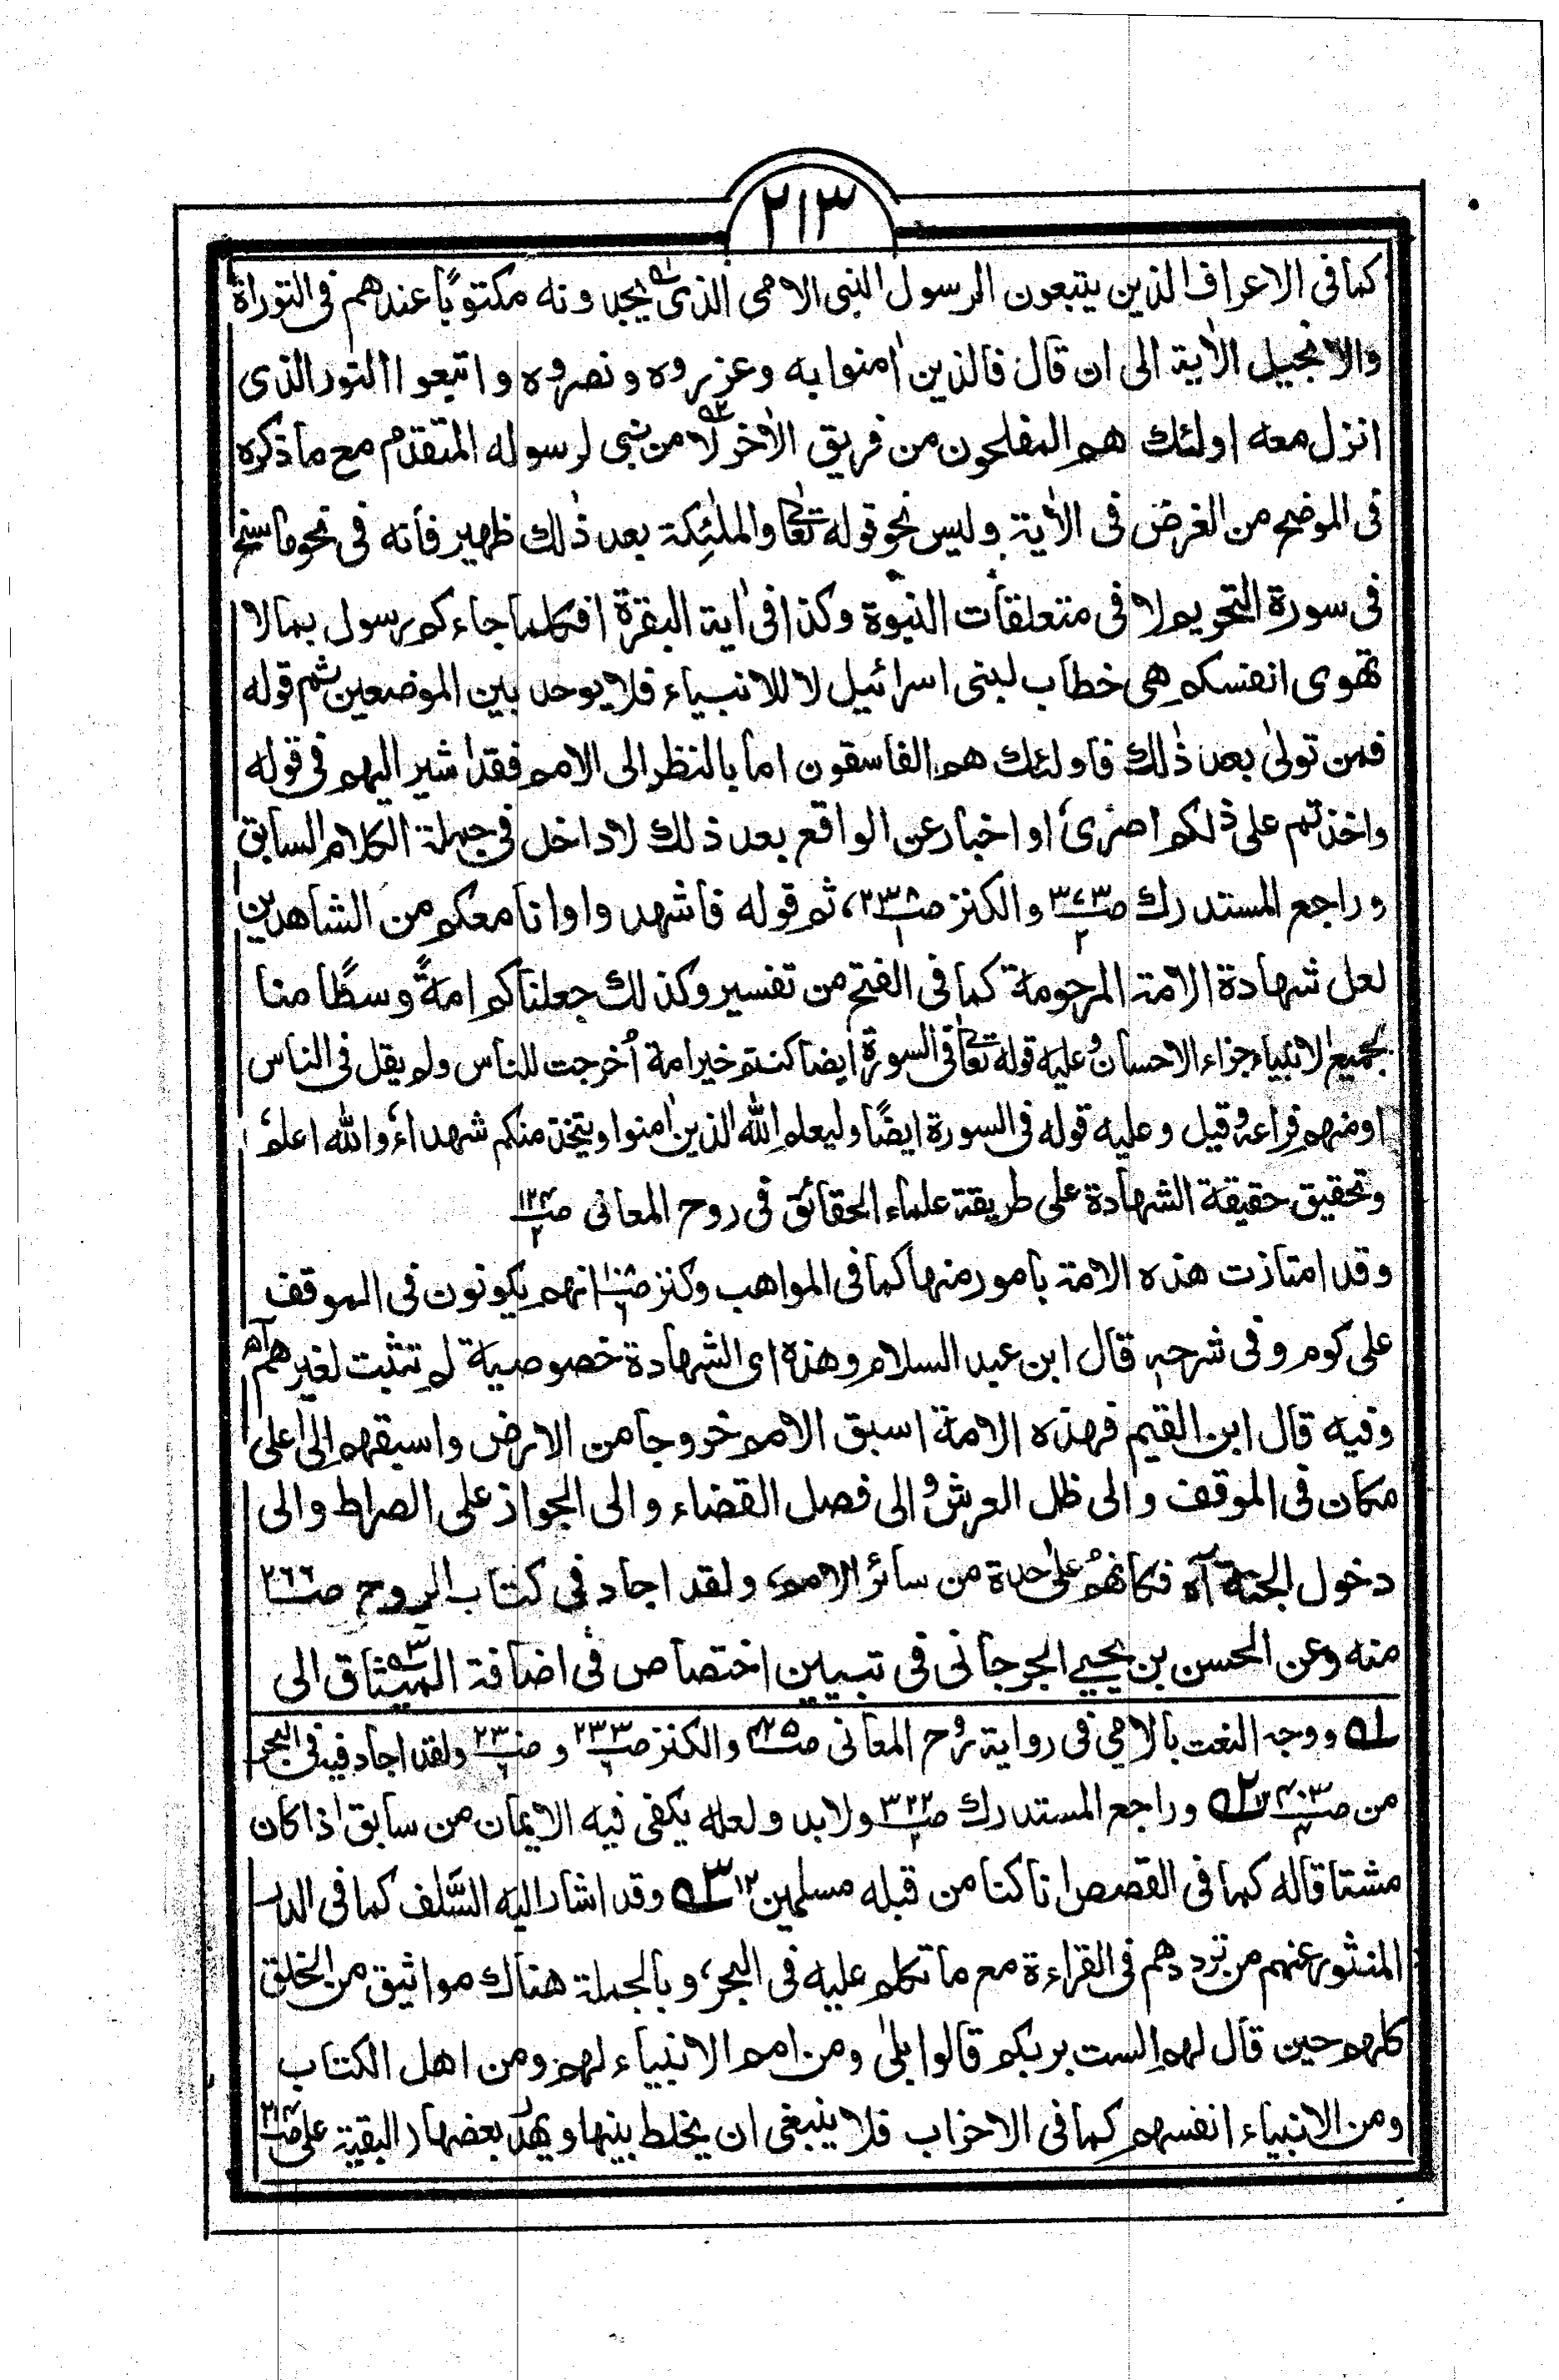 ٢١٣
كما فى الاعراف الذين يتبعون الرسول النبى الامى الذى يجدونه مكتوبًا عندهم فى التوراة
والانجيل الاٰية الى ان قال فالذين اٰمنوا به وعزروه ونصروه واتبعوا النور الذى
انزل معه اولئك هم المفلحون من فريق الاٰخر لا من نبى لرسوله المتقدم مع ما ذكره
فى الموضح من الغرض فى الاٰية وليس نحو قوله تعا والملٰئكة بعد ذٰلك ظهير فانه فى نحو ما سنح
فى سورة التحريم لا فى متعلقات النبوة وكذا فى اٰية البقرة افكلما جاءكم رسول بما لا
تهوى انفسكم هى خطاب لبنى اسرائيل لا للانبياء فلا يوحد بين الموضعين ثم قوله
فمن تولىٰ بعد ذٰلك فاولئك هم الفاسقون اما بالنظر الى الامم فقد اشير اليهم فى قوله
واخذتم على ذلكم اصرى او اخبار عن الواقع بعد ذلك لا داخل فى جملة الكلام السابق
وراجع المستدرك صـ٣٧٣ ٢ والكنز صـ٢٣٨ ١، ثم قوله فاشهدوا وانا معكم من الشاهدين
لعل شهادة الامة المرحومة كما فى الفتح من تفسير وكذلك جعلناكم امةً وسطًا منا
بجميع الانبياء جزاء الاحسان وعليه قوله تعا فى السورة ايضا كنتم خير امة اُخرجت للناس ولم يقل فى الناس
او منهم فراعه وقيل وعليه قوله فى السورة ايضًا وليعلم الله الذين اٰمنوا ويتخذ منكم شهداء والله اعلم
وتحقيق حقيقة الشهادة على طريقة علماء الحقائق فى روح المعانى صـ١٢٤ ٢
وقد امتازت هذه الامة بامور منها كما فى المواهب وكنز انهم يكونون فى الموقف
على كوم وفى شرحه قال ابن عبد السلام وهذه اى الشهادة خصوصية لم تثبت لغيرهم اٰه
وفيه قال ابن القيم فهذه الامة اسبق الامم خروجا من الارض واسبقهم الى اعلى
مكان فى الموقف والى ظل العرش والى فصل القضاء والى الجواز على الصراط والى
دخول الجنة اٰه فكانهم علىٰ حدة من سائر الامم، ولقد اجاد فى كتاب الروح صـ٢٦٦
منه وعن الحسن بن يحيى الجرجانى فى تبيين اختصاص فى اضافة الميثاق الى
لـه ووجه النعت بالامى فى رواية روح المعانى صـ والكنز صـ٢٣٣ و صـ٢٣ ولقد اجاد فيه فى البحر
من صـ٤٠٣ ٤ ٢ـه وراجع المستدرك صـ٣٢٢ ٢ ولابد ولعله يكفى فيه الايمان من سابق اذا كان
مشتاقا له كما فى القصص انا كنا من قبله مسلمين ١٢ ٣ـه وقد اشار اليه السَّلف كما فى الدر
المنثور عنهم من ترددهم فى القراءة مع ما تكلم عليه فى البحر، وبالجملة هناك مواثيق من الخلق
كلهم حين قال لهم الست بربكم قالوا بلىٰ ومن امم الانبياء لهم ومن اهل الكتاب
ومن الانبياء انفسهم كما فى الاحزاب فلا ينبغى ان يخلط بينها ويهدر بعضها (البقية على صـ٢١٤